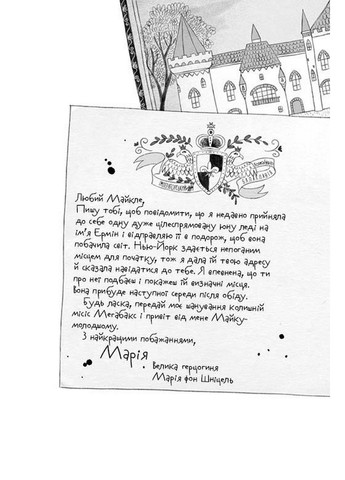 Любий Майкле,
Пишу тобі, щоб повідомити, що я недавно прийняла
до себе одну дуже цілеспрямовану юну леді на
ім'я Ермін і відправляю її в подорож, щоб вона
побачила світ. Нью-Йорк здається непоганим
місцем для початку, тож я дала їй твою адресу
й сказала навідатися до тебе. Я впевнена, що ти
про неї подбаєш і покажеш їй визначні місця.
Вона прибуде наступної середи після обіду.
Будь ласка, передай моє шанування колишній
місіс Мегабакс і привіт від мене Майку-
молодшому.
З найкращими побажаннями,
Марія
Велика герцогиня
Марія фон Шніцель